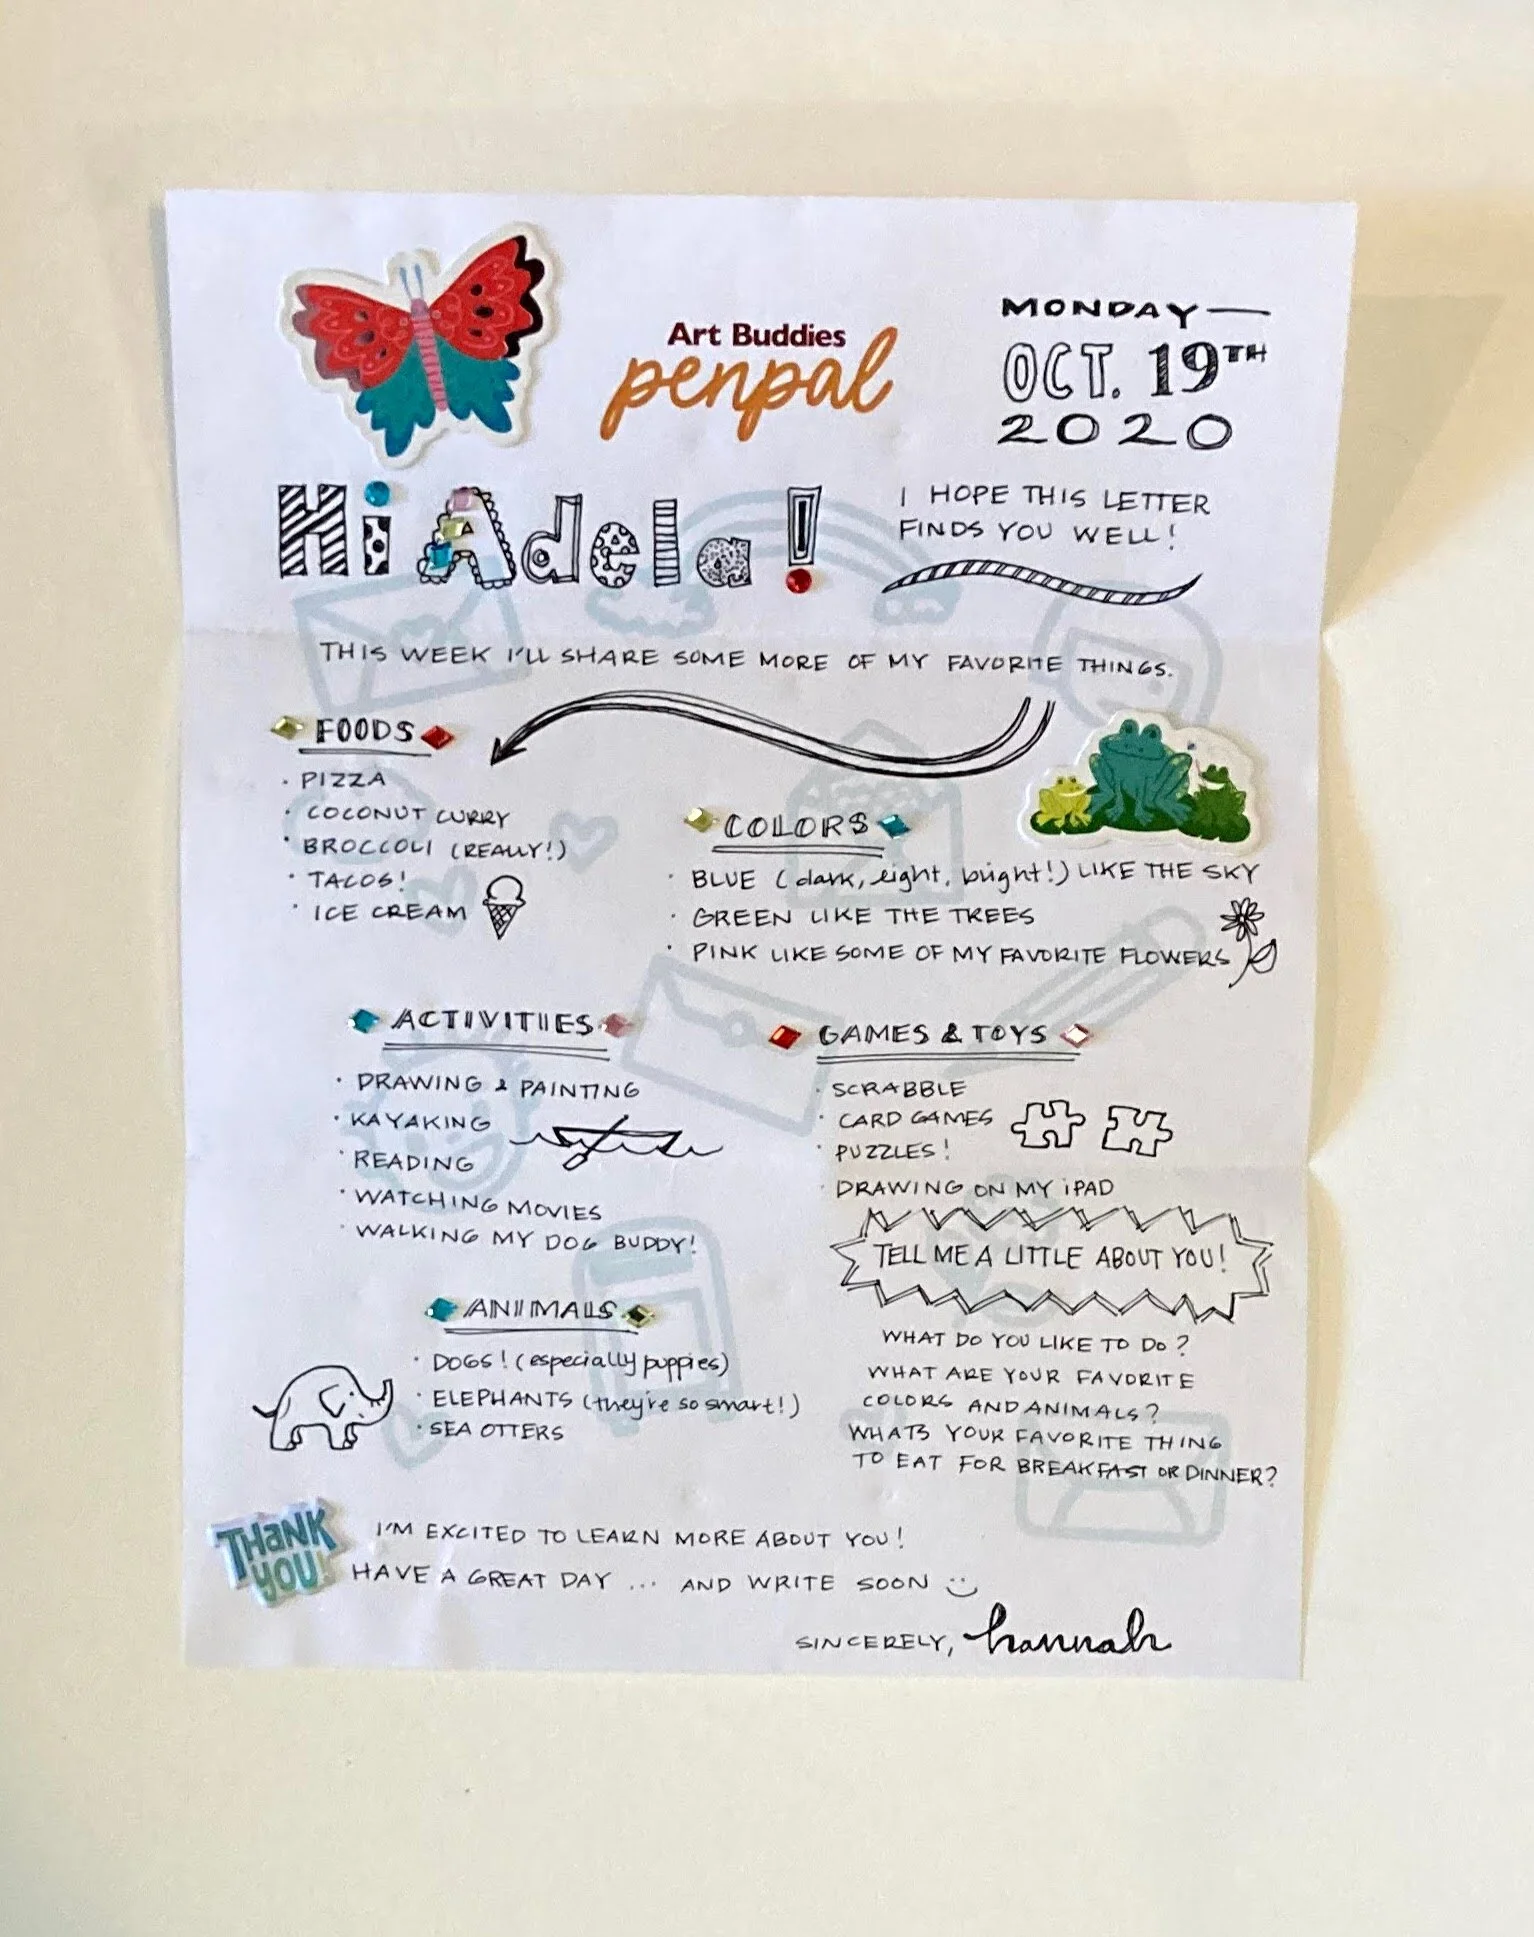 Art Buddies
penpal
MONDAY—
OCT. 19TH
2020
Hi Adela!
I HOPE THIS LETTER
FINDS YOU WELL!
THIS WEEK I'LL SHARE SOME MORE OF MY FAVORITE THINGS.
FOODS
· PIZZA
· COCONUT CURRY
· BROCCOLI (REALLY!)
· TACOS!
· ICE CREAM
COLORS
· BLUE (dark, light, bright!) LIKE THE SKY
· GREEN LIKE THE TREES
· PINK LIKE SOME OF MY FAVORITE FLOWERS
ACTIVITIES
· DRAWING & PAINTING
· KAYAKING
· READING
· WATCHING MOVIES
· WALKING MY DOG BUDDY!
GAMES & TOYS
· SCRABBLE
· CARD GAMES
· PUZZLES!
· DRAWING ON MY iPAD
TELL ME A LITTLE ABOUT YOU!
WHAT DO YOU LIKE TO DO?
WHAT ARE YOUR FAVORITE
COLORS AND ANIMALS?
WHATS YOUR FAVORITE THING
TO EAT FOR BREAKFAST OR DINNER?
ANIMALS
· DOGS! (especially puppies)
· ELEPHANTS (they're so smart!)
· SEA OTTERS
THANK
YOU!
I'M EXCITED TO LEARN MORE ABOUT YOU!
HAVE A GREAT DAY ... AND WRITE SOON
SINCERELY, hannah